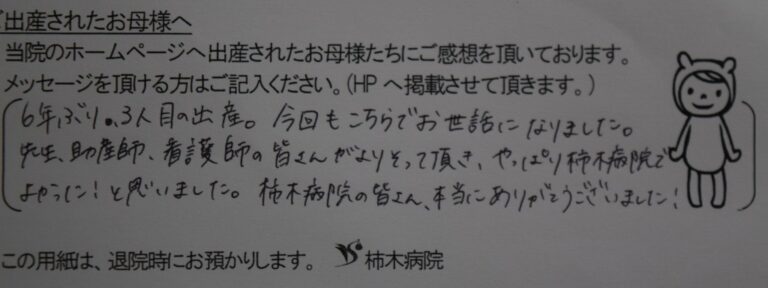 ご出産されたお母様へ
当院のホームページへ出産されたお母様たちにご感想を頂いております。
メッセージを頂ける方はご記入ください。(HPへ掲載させて頂きます。)
6年ぶり。3人目の出産。今回もこちらでお世話になりました。
先生、助産師、看護師の皆さんがよりそって頂き、やっぱり柿木病院で
よかった!と思いました。柿木病院の皆さん、本当にありがとうございました!
この用紙は、退院時にお預かりします。 柿木病院